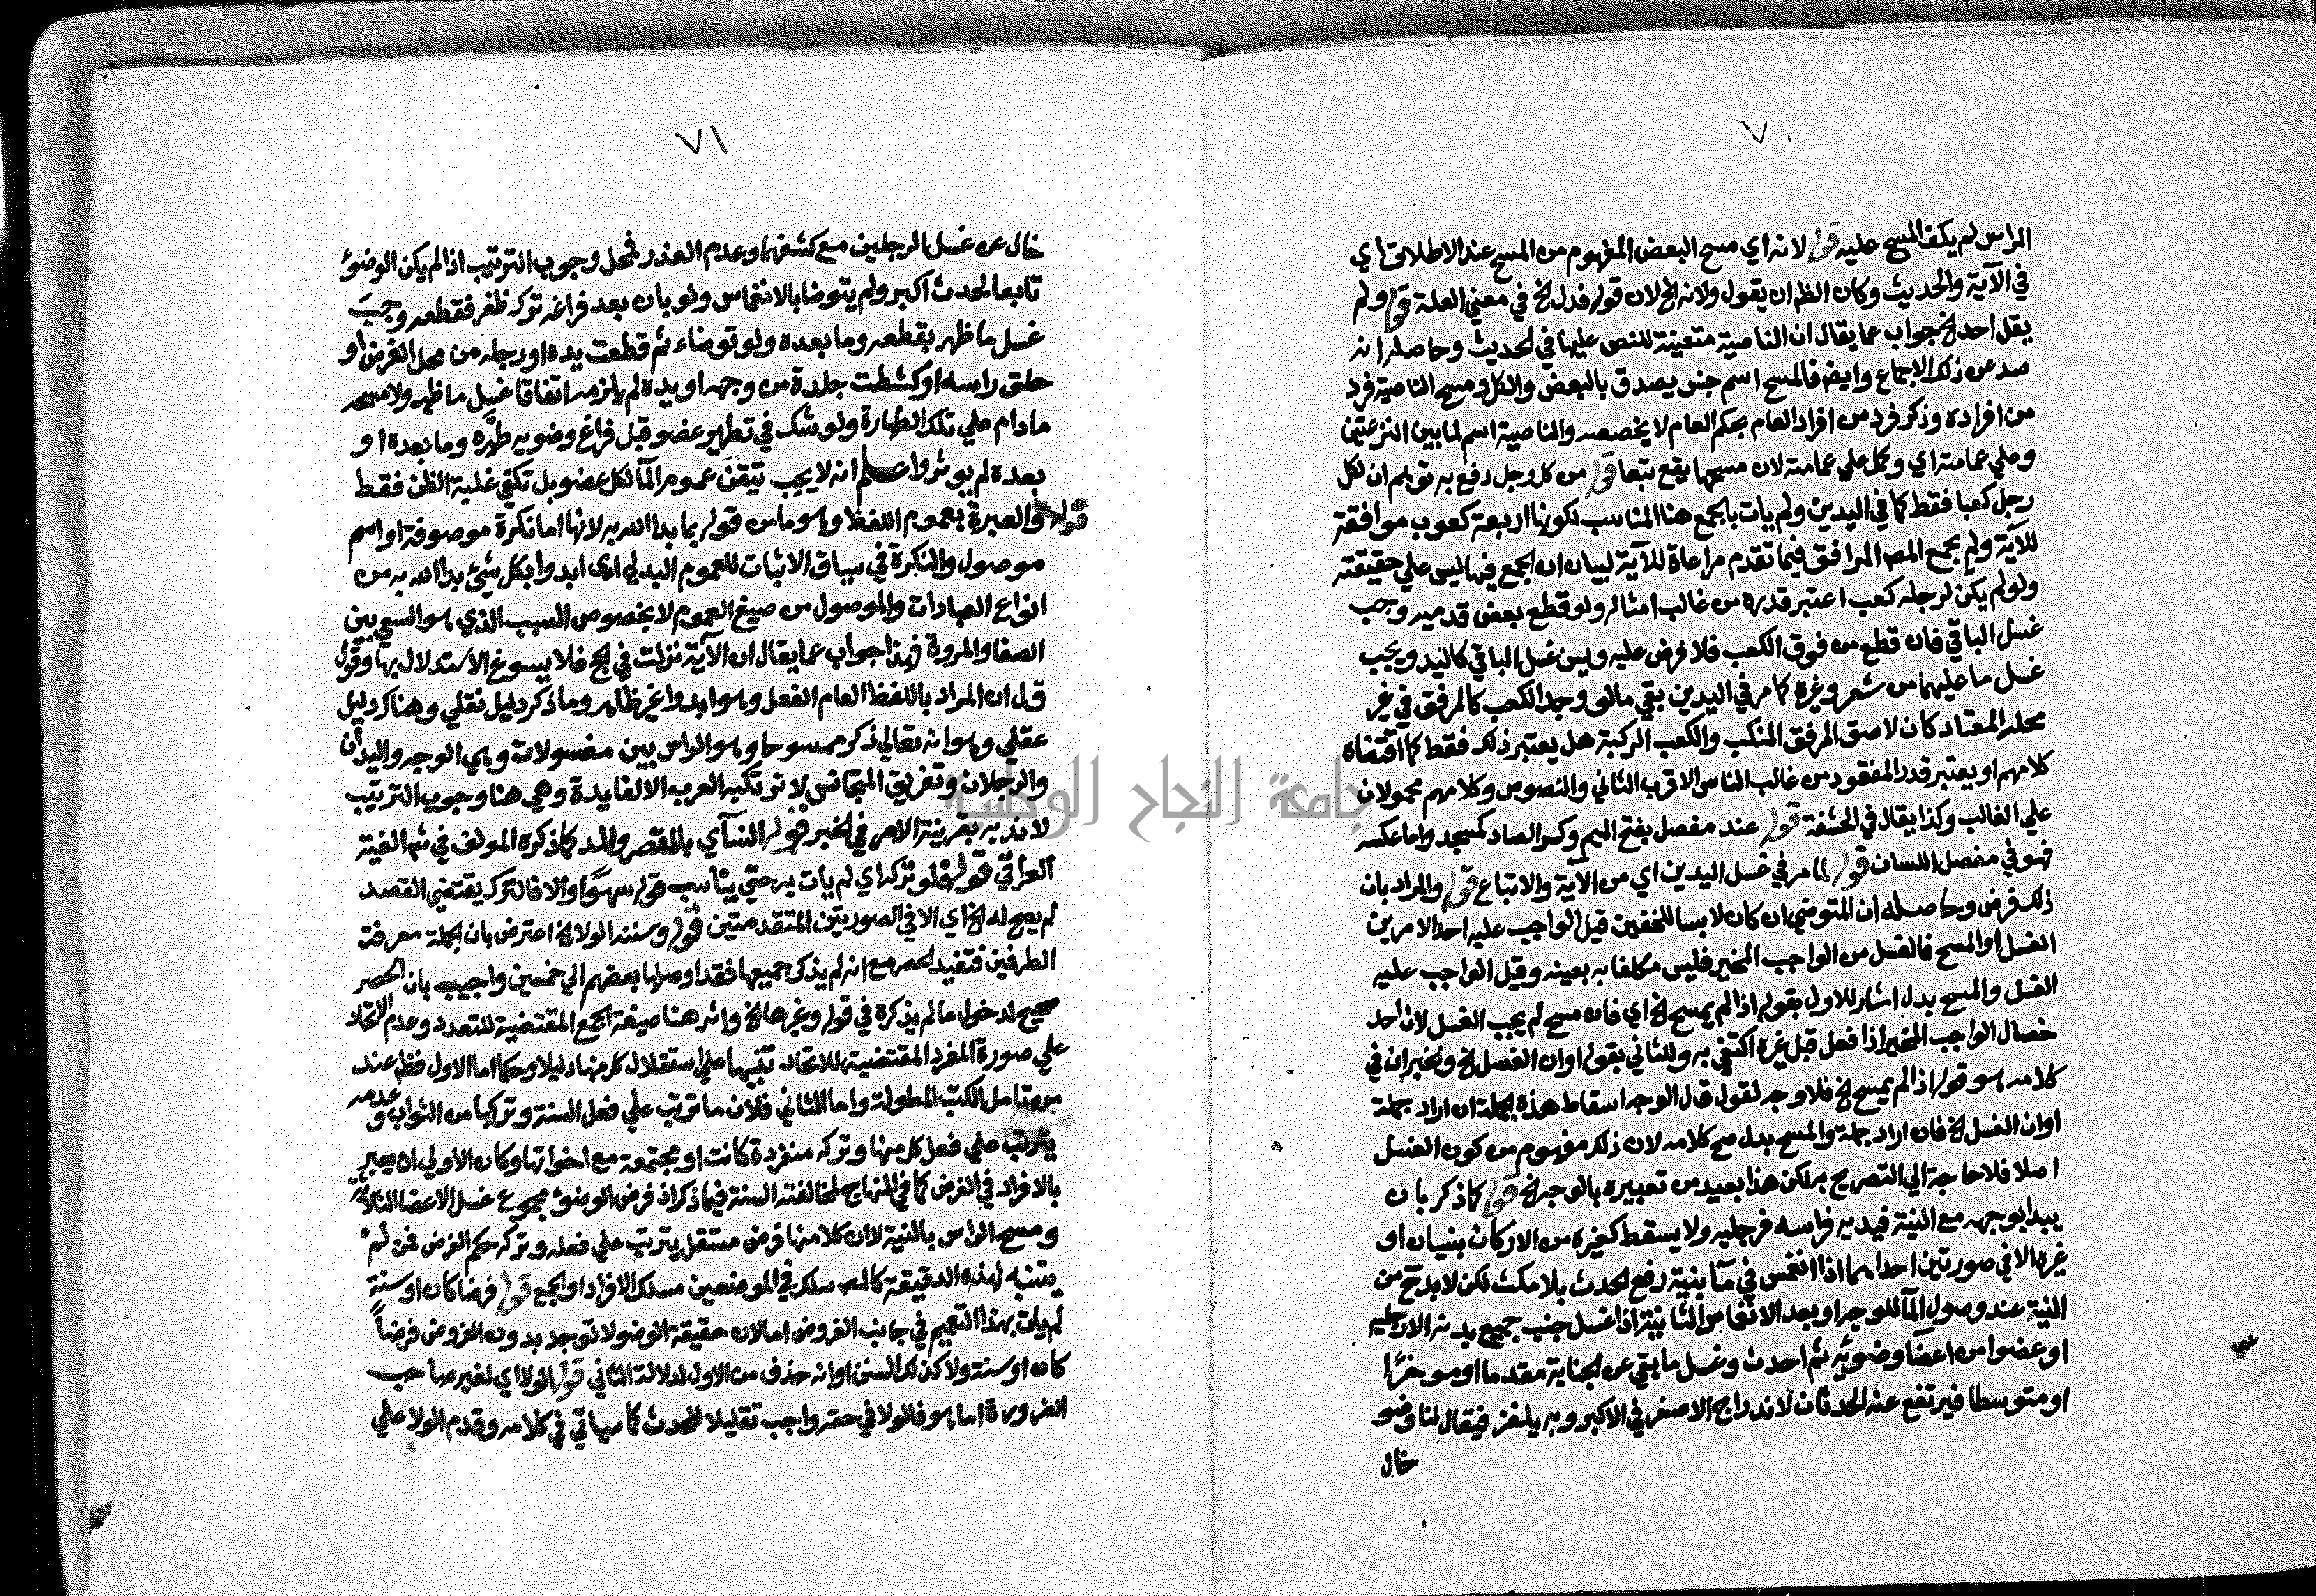 ٧٠
الراس لم يكف المسح عليه قوله لانه اي مسح البعض المفهوم من المسح عند الاطلاق اي
في الآية والحديث وكان الظاهر ان يقول ولانه الخ لان قوله فدل الخ في معني العلة قوله ولم
يقل احد الخ جواب عما يقال ان الناصية متعينة للنص عليها في الحديث وحاصله انه
صد عن ذلك الاجماع وايضا فالمسح اسم جنس يصدق بالبعض والكل ومسح الناصية فرد
من افراده وذكر فرد من افراد العام بحكم العام لا يخصصه والناصية اسم لما بين النزعتين
وعلي عمامته اي وكمل علي عمامته لان مسحها يقع تبعا قوله من كل رجل دفع به توهم ان لكل
رجل كعبا فقط كما في اليدين ولم يات بالجمع هنا المناسب لكونها اربعة كعوب موافقة
للآية ولم يجمع المص المرافق فيما تقدم مراعاة للآية لبيان ان الجمع فيها ليس علي حقيقته
ولو لم يكن لرجله كعب اعتبر قدره من غالب امثاله ولو قطع بعض قدميه وجب
غسل الباقي فان قطع من فوق الكعب فلا فرض عليه ويسن غسل الباقي كاليد ويجب
غسل ما عليهما من شعر وغيره كما مر في اليدين بقي ما لو وجد الكعب كالمرفق في غير
محله المعتاد كان لاصق المرفق المنكب والكعب الركبة هل يعتبر ذلك فقط كما اقتضاه
كلامهم او يعتبر قدر المفقود من غالب الناس الاقرب الثاني والنصوص وكلامهم محمولان
علي الغالب وكذا يقال في الحشفة قوله عند مفصل بفتح الميم وكسر الصاد كمسجد واما عكسه
فهو في مفصل اللسان قوله لما مر في غسل اليدين اي من الآية والاتباع قوله والمراد بان
ذلك فرض وحاصله ان المتوضي ان كان لابسا للخفين قيل الواجب عليه احد الامرين
الغسل او المسح فالغسل من الواجب المخير فليس مكلفا به بعينه وقيل الواجب عليه
الغسل والمسح بدل اشار للاول بقوله اذا لم يمسح الخ اي فان مسح لم يجب الغسل لان احد
خصال الواجب المخير اذا فعل قبل غيره اكتفي به وللثاني بقوله او ان الغسل الخ والخبر ان في
كلامه هو قوله اذا لم يمسح الخ فلا وجه لقول قل الوجه اسقاط هذه الجملة ان اراد جملة
او ان الغسل الخ فان اراد جملة والمسح بدل صح كلامه لان ذلك مفهوم من كون الغسل
اصلا فلا حاجة الي التصريح به لكن هذا بعيد من تعبيره بالوجه الخ قوله كما ذكر بان
يبدا بوجهه مع النية فيديه فراسه فرجليه ولا يسقط كغيره من الاركان بنسيان او
غيره الا في صورتين احداهما اذا انغمس في ماء بنية رفع الحدث بلا مكث لكن لا بد ح من
النية عند وصول الماء للوجه او بعد الانغماس الثانية اذا غسل جنب جميع بدنه الا رجليه
او عضوا من اعضاء وضوئه ثم احدث وغسل ما بقي عن الجنابة مقدما او موخرا
او متوسطا فيرتفع عنه الحدثان لاندراج الاصغر في الاكبر وبه يلغز فيقال لنا وضو
خال
٧١
خال عن غسل الرجلين مع كشفهما وعدم العذر فمحل وجوب الترتيب اذا لم يكن الوضوء
تابعا لحدث اكبر ولم يتوضا بالانغماس ولو بان بعد فراغه ترك ظفر فقطعه وجب
غسل ما ظهر بقطعه وما بعده ولو توضاء ثم قطعت يده او رجله من محل الفرض او
حلق راسه او كشطت جلدة من وجهه او يده لم يلزمه اتفاقا غسل ما ظهر ولا مسحه
ما دام علي تلك الطهارة ولو شك في تطهير عضو قبل فراغ وضويه طهره وما بعده او
بعده لم يوثر واعلم انه لا يجب تيقن عموم الماء لكل عضو بل تكفي غلبة الظن فقط
قوله والعبرة بعموم اللفظ وهو ما من قوله بما بدا الله به لانها اما نكرة موصوفة او اسم
موصول والنكرة في سياق الاثبات للعموم البدلي اي ابدوا بكل شئ بدا الله به من
انواع العبادات والموصول من صيغ العموم لا بخصوص السبب الذي هو السعي بين
الصفا والمروة فهذا جواب عما يقال ان الآية نزلت في الحج فلا يسوغ الاستدلال بها وقول
قل ان المراد باللفظ العام الفعل وهو ابدوا غير ظاهر وما ذكر دليل نقلي وهناك دليل
عقلي وهو انه تعالي ذكر ممسوحا وهو الراس بين مغسولات وهي الوجه واليدان
والرجلان وتفريق المتجانس لا ترتكبه العرب الا لفايدة وهي هنا وجوب الترتيب
لا ندبه بقرينة الامر في الخبر قوله النسآي بالقصر والمد كما ذكره المولف في شرح الفية
العراقي قوله فلو تركه اي لم يات به حتي يناسب قوله سهوا والا فالترك يقتضي القصد
لم يصح له الخ اي الا في الصورتين المتقدمتين قوله وسننه الولا الخ اعترض بان الجملة معرفة
الطرفين فتفيد الحصر مع انه لم يذكر جميعها فقد اوصلها بعضهم الي خمسين واجيب بان الحصر
صحيح لدخول ما لم يذكره في قوله وغيرها الخ واثر هنا صيغة الجمع المقتضية للتعدد وعدم الاتحاد
علي صورة المفرد المقتضية للاتحاد تنبيها علي استقلال كل منها دليلا وحكما اما الاول فظ عند
من تامل الكتب المطولة واما الثاني فلان ما ترتب علي فعل السنة وتركها من الثواب وعدمه
يترتب علي فعل كل منها وتركه منفردة كانت او مجتمعة مع اخواتها وكان الاولي ان يعبر
بالافراد في الفرض كما في المنهاج لمخالفته السنة فيما ذكر اذ فرض الوضوء مجموع غسل الاعضا الثلاثة
ومسح الراس بالنية لا ان كلا منها فرض مستقل يترتب علي فعله وتركه حكم الفرض فمن لم
يتنبه لهذه الدقيقة كالمص سلك في الموضعين مسلك الافراد او الجمع قوله فرضا كان او سنة
لم يات بهذا التعميم في جانب الفروض اما لان حقيقة الوضو لا توجد بدون الفروض فرضا
كان او سنة ولا كذلك السنن او انه حذف من الاول لدلالة الثاني قوله الولا اي لغير صاحب
الضرورة اما هو فالولا في حقه واجب تقليلا للحدث كما سياتي في كلامه وقدم الولا علي
جامعة النجاح الوطنية